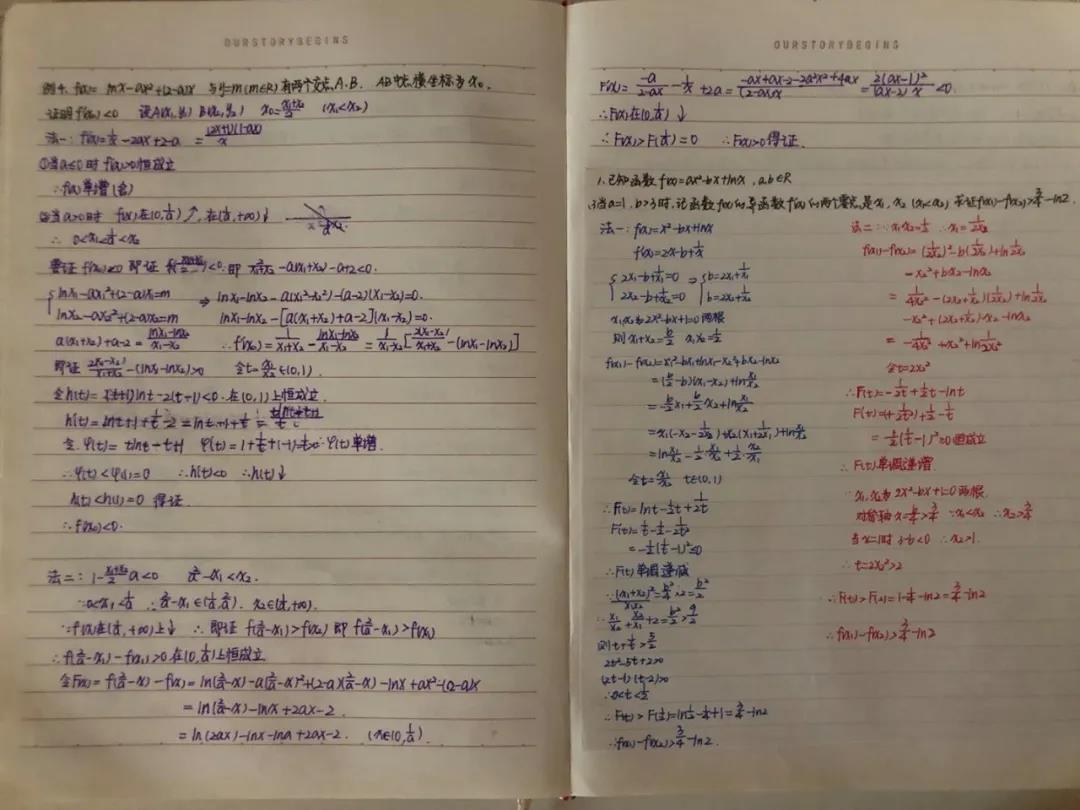 OURSTORYBEGINS
例4. f(x)= lnx-ax²+(2-a)x 与y=m(m∈R)有两个交点A.B. AB中点横坐标为x₀.
证明f'(x₀)<0 设A(x₁,y₁) B(x₂,y₂) x₀=(x₁+x₂)/2 (x₁<x₂)
法一: f'(x)=1/x-2ax+2-a = (2x+1)(1-ax)/x
①当a≤0时 f'(x)>0恒成立
∴f(x)单增(舍)
②当a>0时 f(x)在(0,1/a)↗,在(1/a,+∞)↓
∴ 0<x₁<1/a<x₂
要证f'(x₀)<0 即证 f'((x₁+x₂)/2)<0.即 2/(x₁+x₂)-a(x₁+x₂)-a+2<0.
{lnx₁-ax₁²+(2-a)x₁=m ⇒ lnx₁-lnx₂-a(x₁²-x₂²)-(a-2)(x₁-x₂)=0.
lnx₂-ax₂²+(2-a)x₂=m lnx₁-lnx₂-[a(x₁+x₂)+a-2](x₁-x₂)=0.
a(x₁+x₂)+a-2=(lnx₁-lnx₂)/(x₁-x₂) ∴f'(x₀)=2/(x₁+x₂)-(lnx₁-lnx₂)/(x₁-x₂)=1/(x₁-x₂)[2(x₁-x₂)/(x₁+x₂)-(lnx₁-lnx₂)]
即证 2(x₁-x₂)/(x₁+x₂)-(lnx₁-lnx₂)>0 令t=x₁/x₂∈(0,1).
令h(t)=(t+1)lnt-2(t-1)<0.在(0,1)上恒成立.
h'(t)=lnt+1+1/t-2=lnt-1+1/t=(tlnt-t+1)/t
令φ(t)=tlnt-t+1
∴φ(t)<φ(1)=0 ∴h'(t)<0 ∴h(t)↓
h(t)<h(1)=0 得证.
∴f'(x₀)<0.
法二: 1-(x₁+x₂)/2 a<0 2/a-x₁<x₂.
∵0<x₁<1/a ∴2/a-x₁∈(1/a,2/a). x₂∈(1/a,+∞).
∵f(x)在(1/a,+∞)上↓ ∴即证f(2/a-x₁)>f(x₂) 即f(2/a-x₁)>f(x₁)
∴f(2/a-x₁)-f(x₁)>0在(0,1/a)上恒成立
令F(x)=f(2/a-x)-f(x)=ln(2/a-x)-a(2/a-x)²+(2-a)(2/a-x)-lnx+ax²-(2-a)x
=ln(2/a-x)-lnx+2ax-2.
=ln(2-ax)-lnx-lna+2ax-2. (x∈(0,1/a).
OURSTORYBEGINS
F'(x)=-a/(2-ax)-1/x+2a=(-ax+ax-2-2a²x²+4ax)/((2-ax)x)=2(ax-1)²/((ax-2)x)<0
∴F(x)在(0,1/a)↓
∴F(x)>F(1/a)=0 ∴F(x)>0得证.
1.已知函数f(x)=ax²-bx+lnx,a,b∈R
(3)当a=1,b>3时,记函数f(x)的导函数f'(x)的两个零点是x₁,x₂(x₁<x₂)求证f(x₁)-f(x₂)>3/4-ln2.
法一:f(x)=x²-bx+lnx
f'(x)=2x-b+1/x
{2x₁-b+1/x₁=0 ⇒ {b=2x₁+1/x₁
2x₂-b+1/x₂=0 b=2x₂+1/x₂
x₁,x₂为2x²-bx+1=0两根
则x₁+x₂=b/2 x₁x₂=1/2
f(x₁)-f(x₂)=x₁²-bx₁+lnx₁-x₂²+bx₂-lnx₂
=(b/2-b)(x₁-x₂)+ln x₁/x₂
=-b/2 x₁+b/2 x₂+ln x₁/x₂
=x₁(-x₂-1/2x₂)+x₂(x₁+1/2x₁)+ln x₁/x₂
=ln x₁/x₂-1/2·x₁/x₂+1/2·x₂/x₁
令t=x₁/x₂ t∈(0,1)
∴F(t)=lnt-1/2t+1/2t
F'(t)=1/t-1/2-1/2t²
=-1/2(1/t-1)²≤0
∴F(t)单调递减
∵(x₁+x₂)²/x₁x₂=b²/4×2=b²/2
∴x₁/x₂+x₂/x₁+2=b²/2>9/2
则t+1/t>5/2
2t²-5t+2>0
(2t-1)(t-2)>0
∴0<t<1/2
∴F(t)>F(1/2)=ln1/2-1/4+1=3/4-ln2
∴f(x₁)-f(x₂)>3/4-ln2.
法二:∵x₁x₂=1/2 ∴x₁=1/2x₂
f(x₁)-f(x₂)=(1/2x₂)²-b(1/2x₂)+ln1/2x₂
-x₂²+bx₂-lnx₂
=1/4x₂²-(2x₂+1/x₂)(1/2x₂)+ln1/2x₂
-x₂²+(2x₂+1/x₂)·x₂-lnx₂
=-1/4x₂²+x₂²+ln1/2x₂²
令t=2x₂²
∴F(t)=-1/2t+1/2t-lnt
=1/2(1/t-1)²≥0恒成立
∴F(t)单调递增
∵x₁,x₂为2x²-bx+1=0两根.
对称轴x=b/4>3/4 ∵x₁<x₂ ∴x₂>3/4
当x=1时 3-b<0 ∴x₂>1.
∴t=2x₂²>2
∴F(t)>F(2)=1-1/4-ln2=3/4-ln2
∴f(x₁)-f(x₂)>3/4-ln2